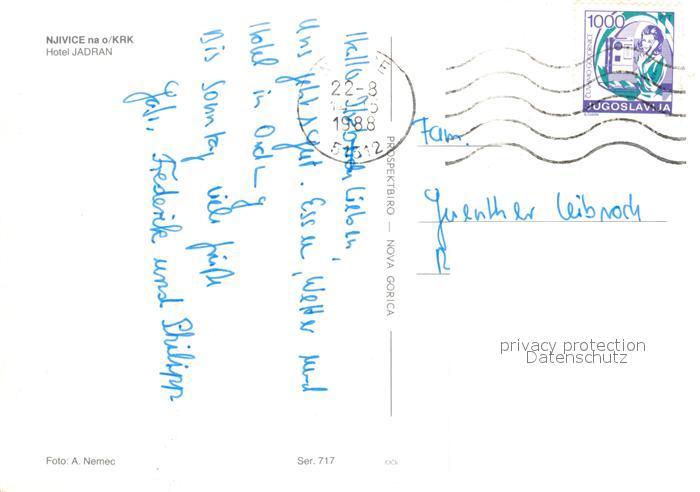 NJIVICE na o/KRK
Hotel JADRAN
Hallo Ihr Lieben,
Uns geht's gut. Essen, Wetter und
Hotel in Ordng
Bis Sonntag viele Grüße
Gabi, Frederik und Philipp
22-8
1988
51512
PROSPEKTBIRO — NOVA GORICA
1000
JUGOSLAVIJA
Fam.
Guenther Leibrock
privacy protection
Datenschutz
Foto: A. Nemec
Ser. 717